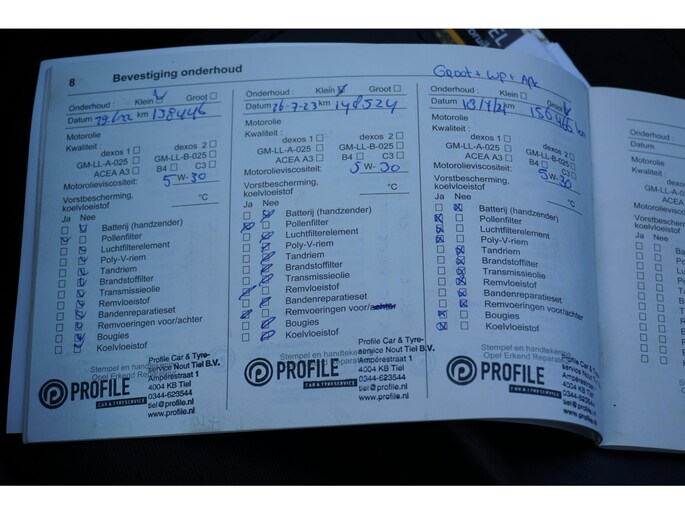 8 Bevestiging onderhoud
Onderhoud : Klein Groot
Datum km 138446
Motorolie
Kwaliteit :
dexos 1 dexos 2
GM-LL-A-025 GM-LL-B-025
ACEA A3 B4 C3
Motorolieviscositeit: 5 W-30
Vorstbescherming,
koelvloeistof °C
Ja Nee
Batterij (handzender)
Pollenfilter
Luchtfilterelement
Poly-V-riem
Tandriem
Brandstoffilter
Transmissieolie
Remvloeistof
Bandenreparatieset
Remvoeringen voor/achter
Bougies
Koelvloeistof
Stempel en
Opel Erkend
PROFILE
CAR & TYRESERVICE
Profile Car & Tyre-
service Nout Tiel B.V.
Ampèrestraat 1
4004 KB Tiel
0344-623544
tiel@profile.nl
www.profile.nl
Onderhoud : Klein Groot
Datum 26-7-23 km 148524
Motorolie
Kwaliteit :
dexos 1 dexos 2
GM-LL-A-025 GM-LL-B-025
ACEA A3 B4 C3
Motorolieviscositeit: 5 W-30
Vorstbescherming,
koelvloeistof °C
Ja Nee
Batterij (handzender)
Pollenfilter
Luchtfilterelement
Poly-V-riem
Tandriem
Brandstoffilter
Transmissieolie
Remvloeistof
Bandenreparatieset
Remvoeringen voor/achter
Bougies
Koelvloeistof
Stempel en
Opel Erkend
PROFILE
CAR & TYRESERVICE
Profile Car & Tyre-
service Nout Tiel B.V.
Ampèrestraat 1
4004 KB Tiel
0344-623544
tiel@profile.nl
www.profile.nl
Groot +
Onderhoud : Klein Groot
Datum km
Motorolie
Kwaliteit :
dexos 1 dexos 2
GM-LL-A-025 GM-LL-B-025
ACEA A3 B4 C3
Motorolieviscositeit: 5 W-30
Vorstbescherming,
koelvloeistof °C
Ja Nee
Batterij (handzender)
Pollenfilter
Luchtfilterelement
Poly-V-riem
Tandriem
Brandstoffilter
Transmissieolie
Remvloeistof
Bandenreparatieset
Remvoeringen voor/achter
Bougies
Koelvloeistof
Stempel en
Opel Erkend
PROFILE
CAR & TYRESERVICE
Profile Car & Tyre-
service Nout Tiel
Ampèrestraat 1
4004 KB Tiel
0344-623544
tiel@profile.nl
www.profile.nl
Onderhoud :
Datum
Motorolie
Kwaliteit :
Motorolieviscositeit
Vorstbescherming
koelvloeistof
Ja Nee